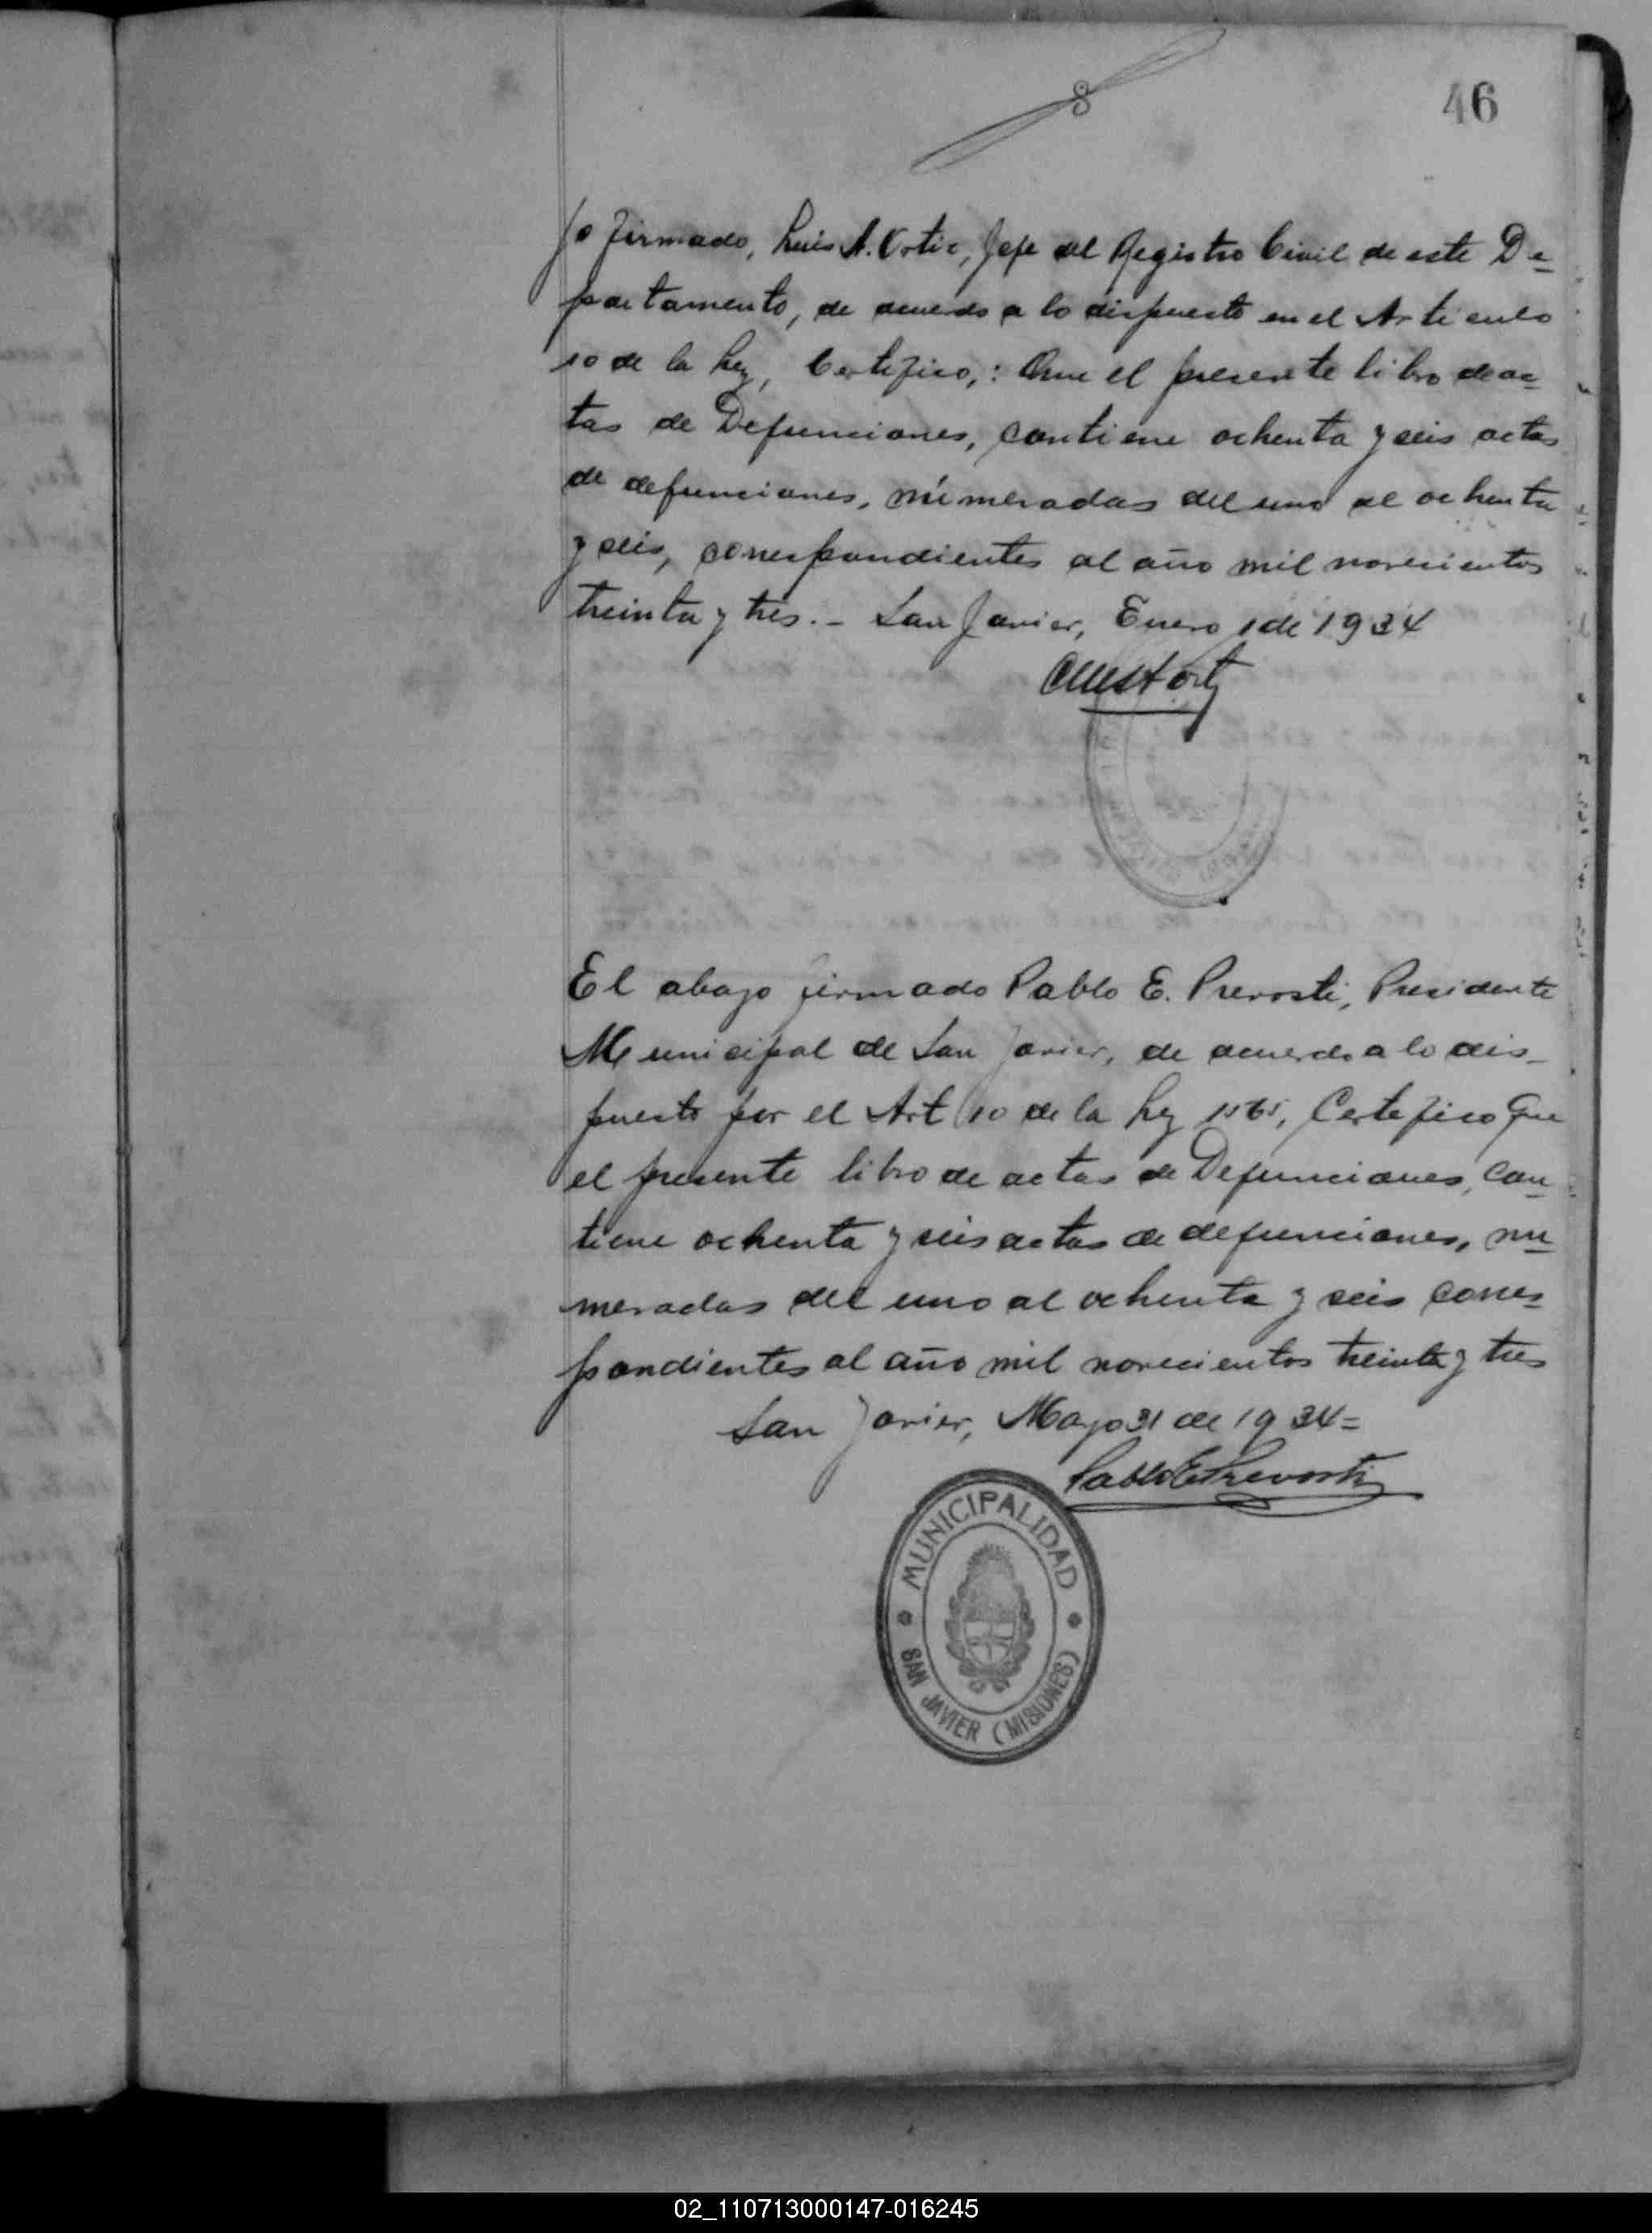 46
Yo firmado, Luis A. Ortiz, Jefe del Registro Civil de este De-
partamento, de acuerdo a lo dispuesto en el Articulo
10 de la Ley, Certifico,: Que el presente libro de ac-
tas de Defunciones, contiene ochenta y seis actas
de defunciones, numeradas del uno al ochenta
y seis, correspondientes al año mil novecientos
treinta y tres.- San Javier, Enero 1 de 1934
El abajo firmado Pablo E. Prevosti, Presidente
Municipal de San Javier, de acuerdo a lo dis-
puesto por el Art 10 de la Ley 1565, Certifico Que
el presente libro de actas de Defunciones, con-
tiene ochenta y seis actas de defunciones, nu-
meradas del uno al ochenta y seis corres-
pondientes al año mil novecientos treinta y tres
San Javier, Mayo 31 de 1934=
Pablo E Prevosti
MUNICIPALIDAD
SAN JAVIER (MISIONES)
02_110713000147-016245